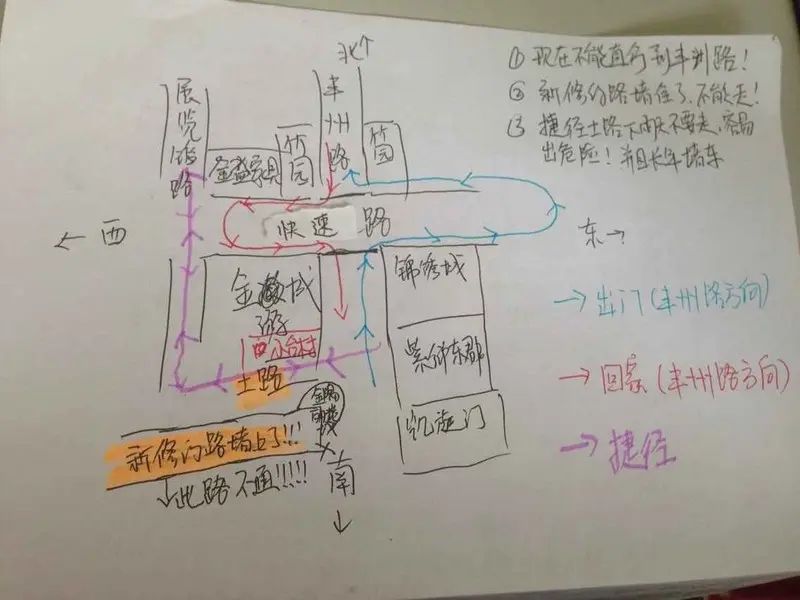 北↑
① 现在不能直行到丰州路!
② 新修的路堵住了,不能走!
③ 捷径土路下雨天不要走,容易
出危险!并且长年堵车
展览馆路
丰州路
竹园
竹园
金盛家具
← 西
快速路
东→
金城
锦绣城
小台村
紫御东郡
土路
凯旋门
新修的路堵上了!!!
↓此路不通!!!!!
南
↓
→ 出门(丰州路方向)
→ 回家(丰州路方向)
→ 捷径